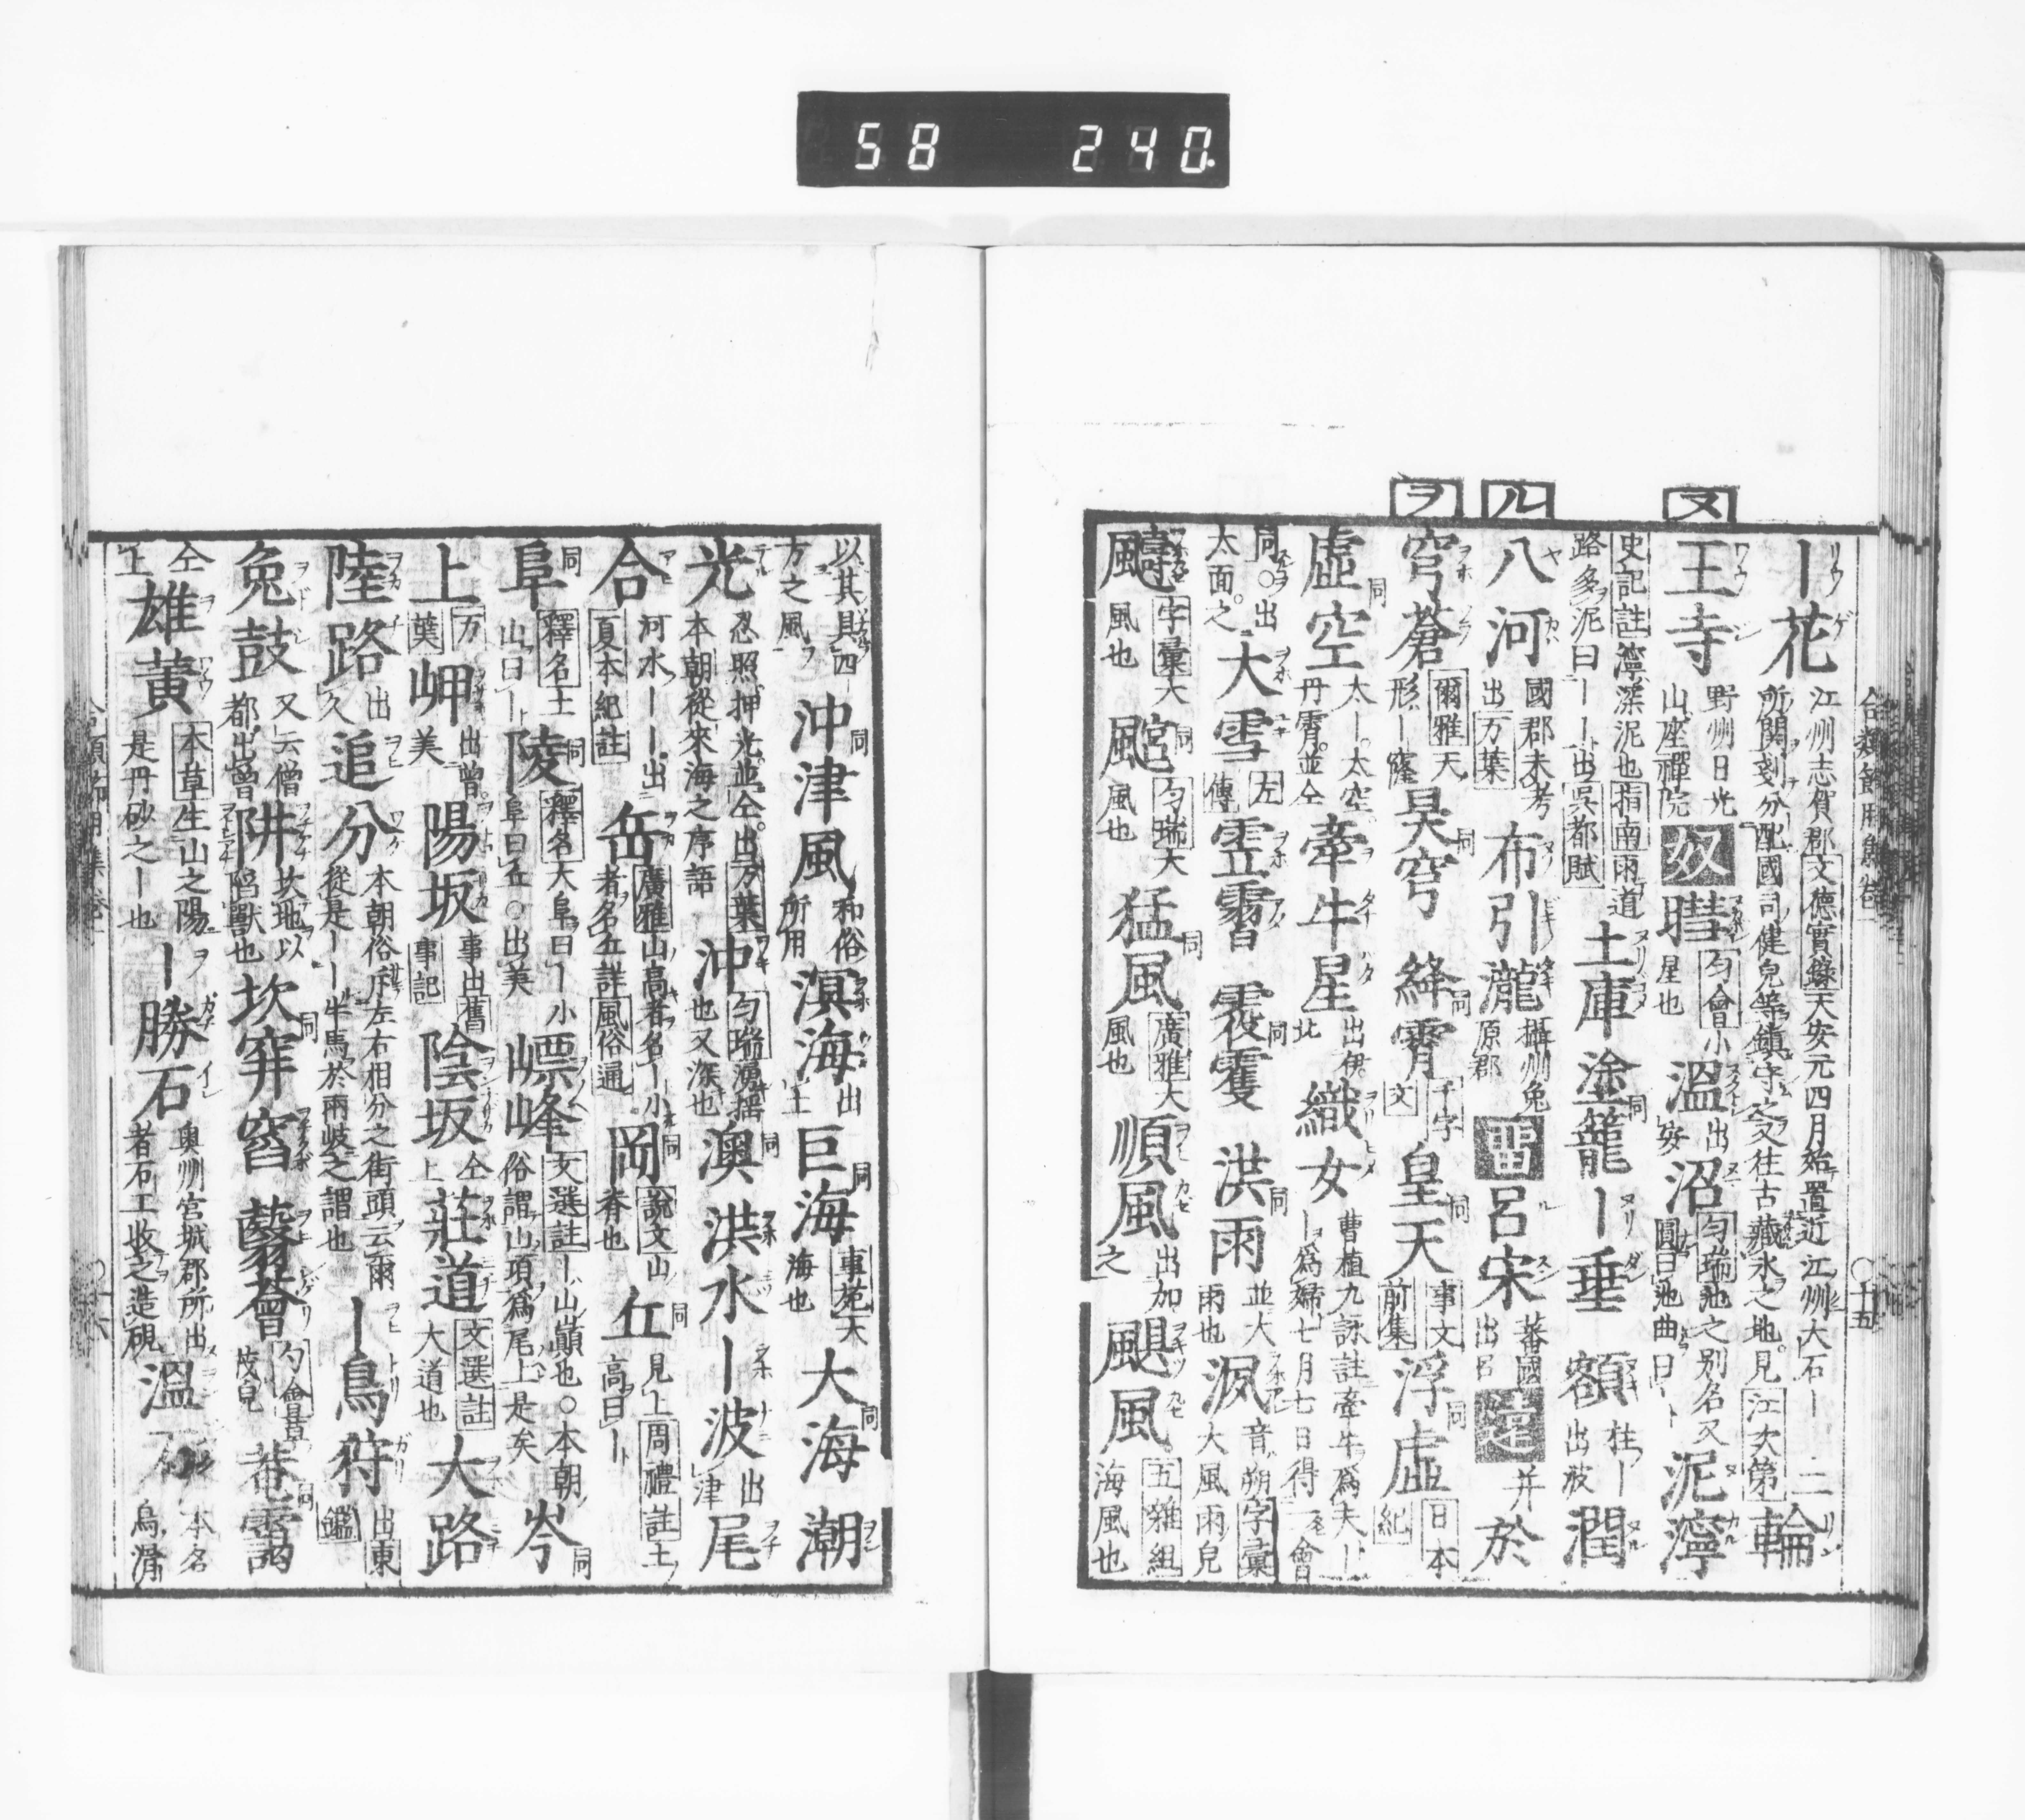 58 240
ヌ
ル
ヲ
合類節用集卷一
○十五
｜花 江州志賀郡文德實錄天安元四月始置近江州大石｜
所關剗分配國司健兒等鎮守之又往古藏氷之地見江次第 二輪
王寺 野州日光山座禪院 奴 暒 勻會小星也 溫 出安 沼 勻瑞池之別名又圓曰池曲曰｜ 泥濘
史記註濘深泥也指南雨道路多泥曰｜｜出吳都賦 土庫 塗籠 ｜垂 額 柱｜出波 潤
八河 國郡未考出万葉 布引瀧 攝州兔原郡 畱 呂宋 蕃國出呂 遠 并於
穹蒼 爾雅天形｜窿 昊穹 絳霄 千字文 皇天 事文前集 浮虛 日本紀
虛空 太｜太空丹霄並仝 牽牛星 出伊北 織女 曹植九詠註牽牛爲夫｜｜爲婦七月七日得一會
同○出太面之 大雪 左傳 霔霫 䨱䨥 洪雨 並大雨也 㴑 音朔字彙大風雨皃
䬞 字彙大風也 䫻 勻瑞大風也 猛風 廣雅大風也 順風 出加之 颶風 五雜組海風也
以其具四方之風 沖津風 和俗所用 溟海 出土 巨海 事苑大海也 大海 潮
光 忍照押光並仝出万葉本朝從來海之序語 沖 勻瑞湧搖也又深也 澳 洪水 ｜波 出津 尾
合 河水｜｜出夏本紀註 岳 廣雅山高者名｜小者名丘詳風俗通 岡 說文山脊也 丘 見上周禮註土高曰｜
阜 釋名土山曰｜ 陵 釋名大阜曰｜小阜曰丘○出美 嶛峰 文選註｜山巔也○本朝俗謂山項爲尾上是矣 岑
上 万葉 岬 出曾美 陽坂 事出舊事記 陰坂 仝上 莊道 文選註大道也 大路
陸路 出久 追分 本朝俗斥左右相分之街頭云爾從是｜｜牛馬於兩岐之謂也 ｜鳥狩 出東鑑
兔鼓 又云僧都出曾 阱 坎地以陷獸也 坎穽 窞 蘙薈 勻會草茂皃 菴藹
仝上 雄黃 本草生山之陽是丹砂之｜也 ｜勝石 奥州宮城郡所出者石工收之造硯 溫石 本名烏滑